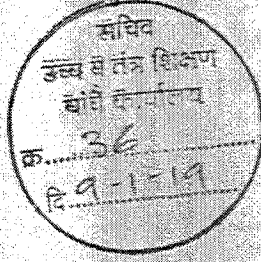 सचिव
उच्च व तंत्र शिक्षण
यांचे कार्यालय
क्र..... 36 ..............
दि. 9-1-19